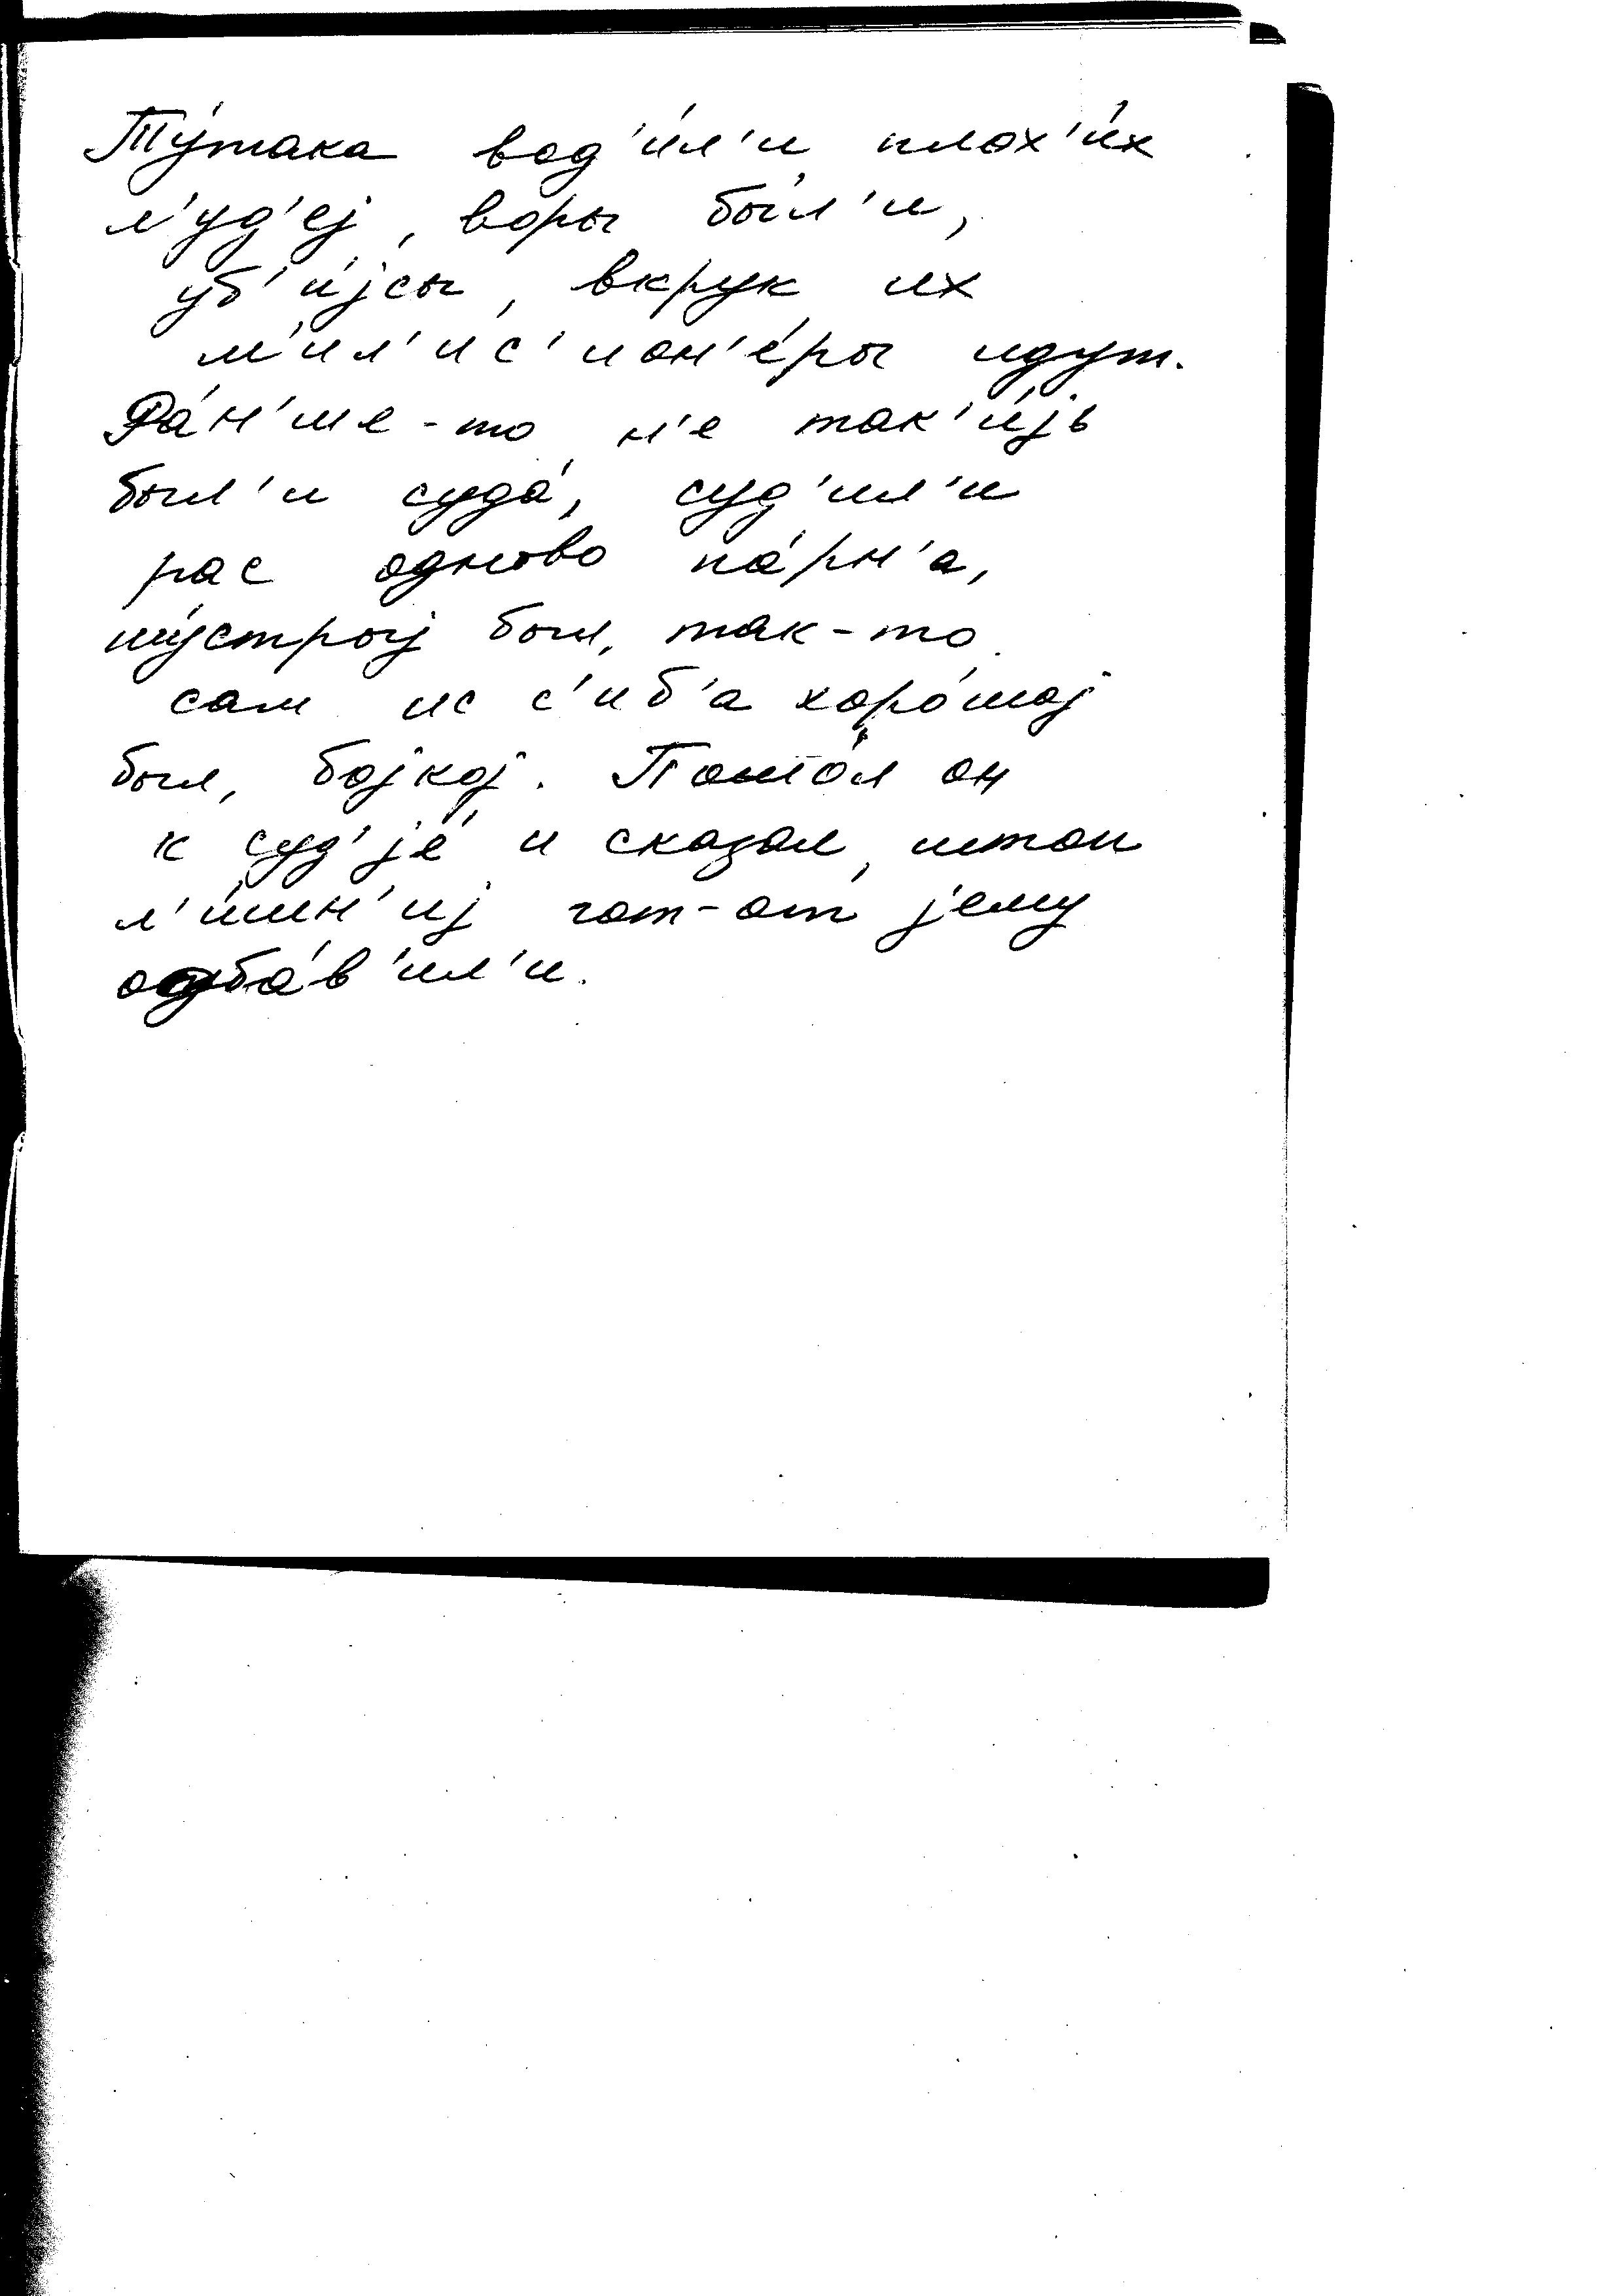 Ту́така вод'и́л'и плох'и́х
л'уд'еј, воры бы́л'и,
уб'и́јсы, вкрук их
м'ил'ис'ион'е́ры идут.
Ра́н'ше-то н'е так'и́јь
был'и суда́, суд'ил'и
рас одново па́рн'а,
шу́строј был, так-то
сам ис с'иб'а хоро́шој
был, бојкој. Пошо́л он
к суд'је́ и сказал, штои
л'и́шн'иј гот-от јему
одба́в'ил'и.